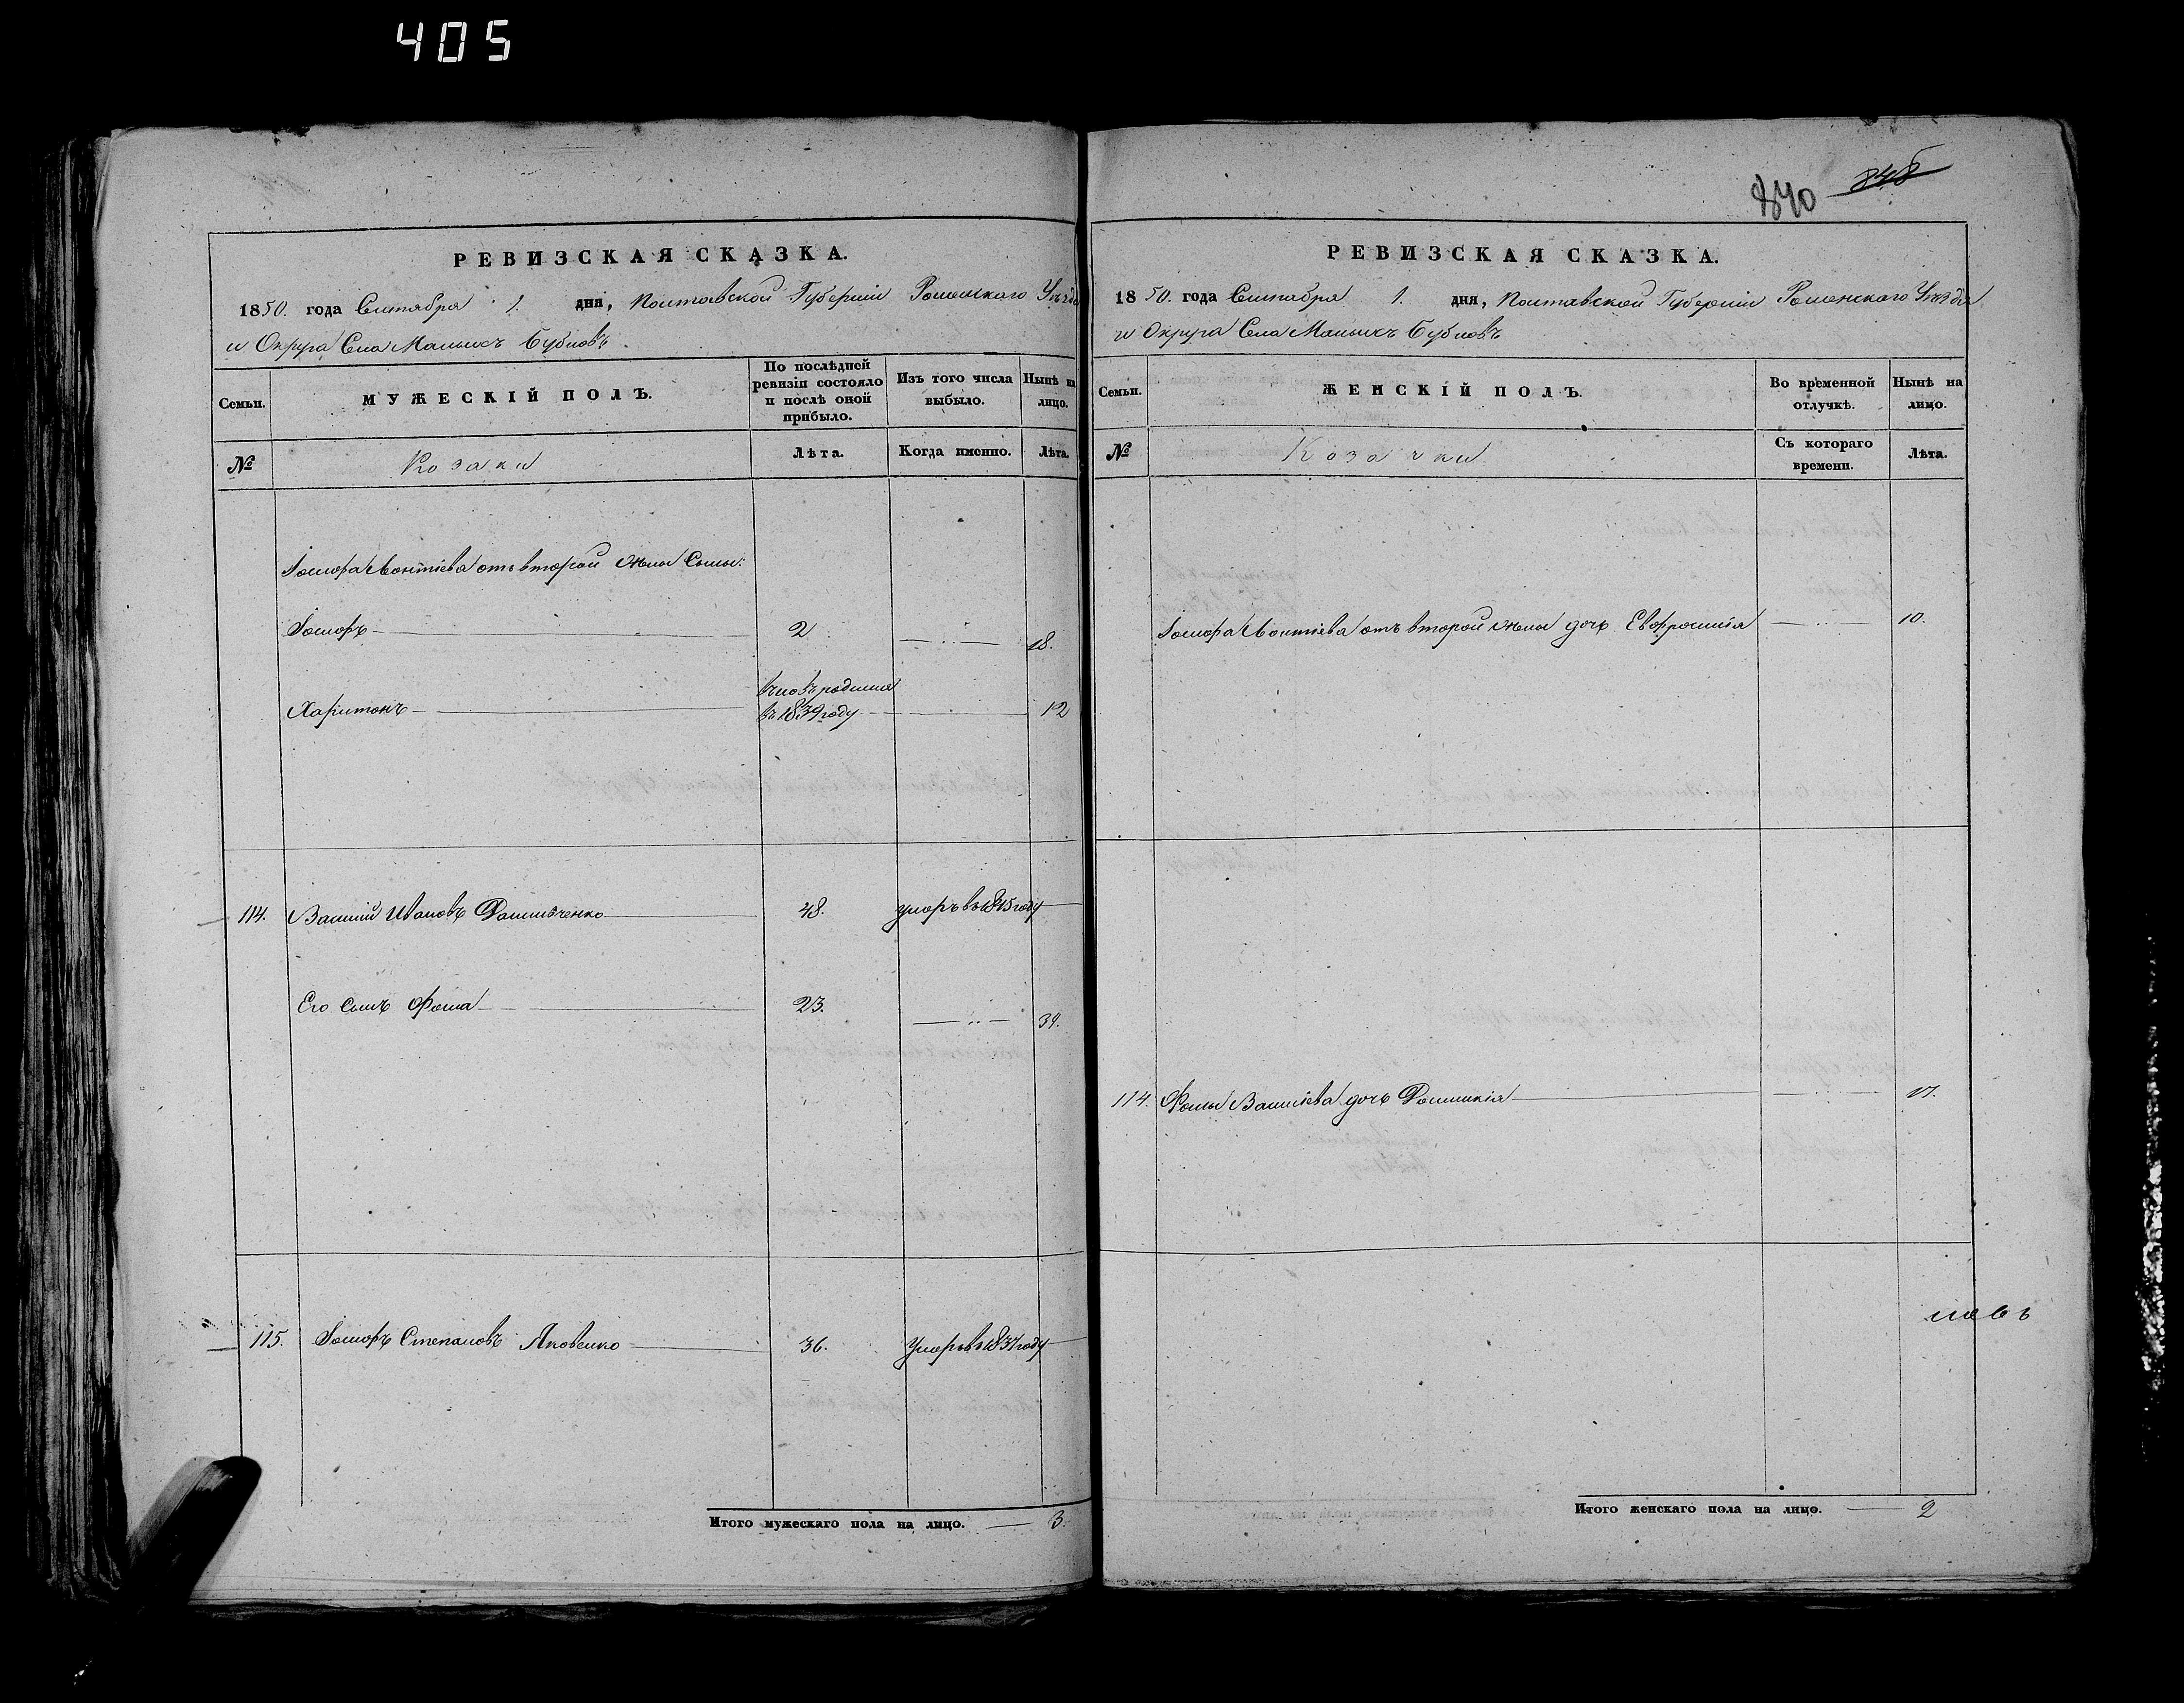 405
840 848
РЕВИЗСКАЯ СКАЗКА.
1850. года Сентября 1. дня, Полтавской Губерніи Роменскаго Уѣзда
и Округа Села Малыхъ Бубновъ
Семьи.
МУЖЕСКІЙ ПОЛЪ.
По послѣдней ревизіи состояло и послѣ оной прибыло.
Изъ того числа выбыло.
Нынѣ на лицо.
№
Козаки
Лѣта.
Когда именно.
Лѣта.
Леонтіева отъ второй жены Сыны:
2 18.
Харитонъ вновь родился въ 1839 году 12
114. Василій Ивановъ 48. умеръ въ 1845 году
Его сынъ Фома 23. 39.
115. Степановъ Яковенко 36. Умеръ въ 1837 году
Итого мужескаго пола на лицо. 3.
РЕВИЗСКАЯ СКАЗКА.
1850. года Сентября 1. дня, Полтавской Губерніи Роменскаго Уѣзда
и Округа Села Малыхъ Бубновъ
Семьи.
ЖЕНСКІЙ ПОЛЪ.
Во временной отлучкѣ.
Нынѣ на лицо.
№
Козачки
Съ котораго времени.
Лѣта.
Леонтіева отъ второй жены дочь Евфросинія 10.
114. Фомы Василіева дочь 17.
Итого женскаго пола на лицо. 2